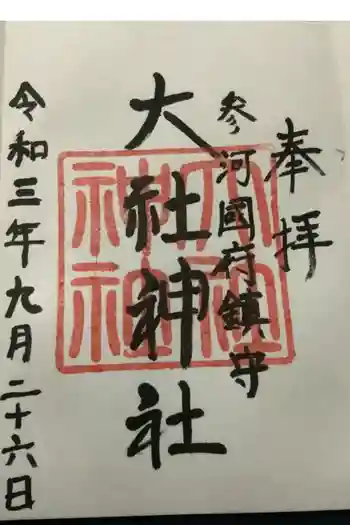 奉拝
参河國府鎮守
大社神社
令和三年九月二十六日
大社神社